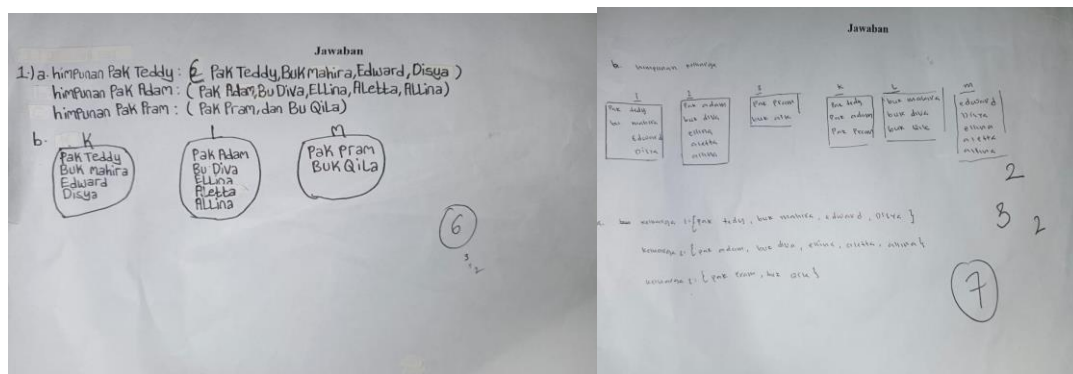 Jawaban
1.) a. himpunan Pak Teddy : ( Pak Teddy, Buk Mahira, Edward, Disya )
himpunan Pak Adam : ( Pak Adam, Bu Diva, Ellina, Aletta, Allina)
himpunan Pak Pram : ( Pak Pram, dan Bu Qila)
b.
K
Pak Teddy
Buk mahira
Edward
Disya
L
Pak Adam
Bu Diva
Ellina
Aletta
Allina
M
Pak Pram
Buk Qila
6
3
2
Jawaban
b. himpunan keluarga
1
Pak tedy
buk mahira
Edward
Disya
2
Pak adam
buk diva
ellina
aletta
3
Pak Pram
K
Pak tedy
Pak adam
Pak Pram
L
buk mahira
buk diva
M
edward
Disya
ellina
aletta
2
3
2
keluarga 1 : { Pak tedy, buk mahira, edward, Disya }
keluarga 2 : { Pak adam, buk diva, aletta,
keluarga 3 : { Pak Pram, buk
7